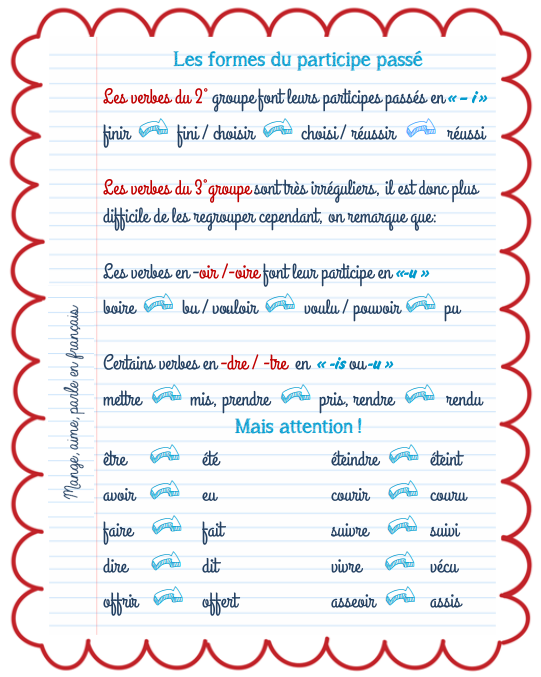 Les formes du participe passé
Les verbes du 2° groupe font leurs participes passés en « – i »
finir fini / choisir choisi / réussir réussi
Les verbes du 3° groupe sont très irréguliers, il est donc plus
difficile de les regrouper cependant, on remarque que:
Les verbes en -oir /-oire font leur participe en «-u »
boire bu / vouloir voulu / pouvoir pu
Certains verbes en -dre / -tre en « -is ou -u »
mettre mis, prendre pris, rendre rendu
Mais attention !
être été éteindre éteint
avoir eu courir couru
faire fait suivre suivi
dire dit vivre vécu
offrir offert asseoir assis
Mange, aime, parle en français